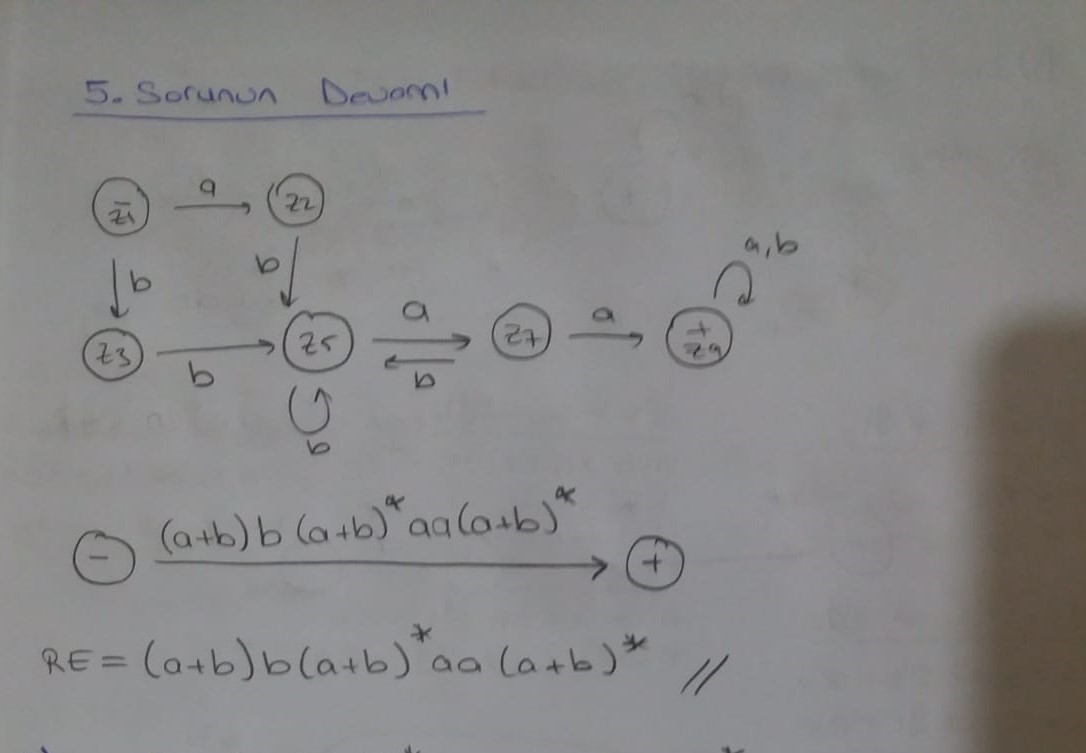 5. Sorunun Devamı
z1 a z2
b b a,b
z3 b z5 a b z7 a + z9
b
- (a+b)b(a+b)*aa(a+b)* +
RE = (a+b)b(a+b)*aa(a+b)* //